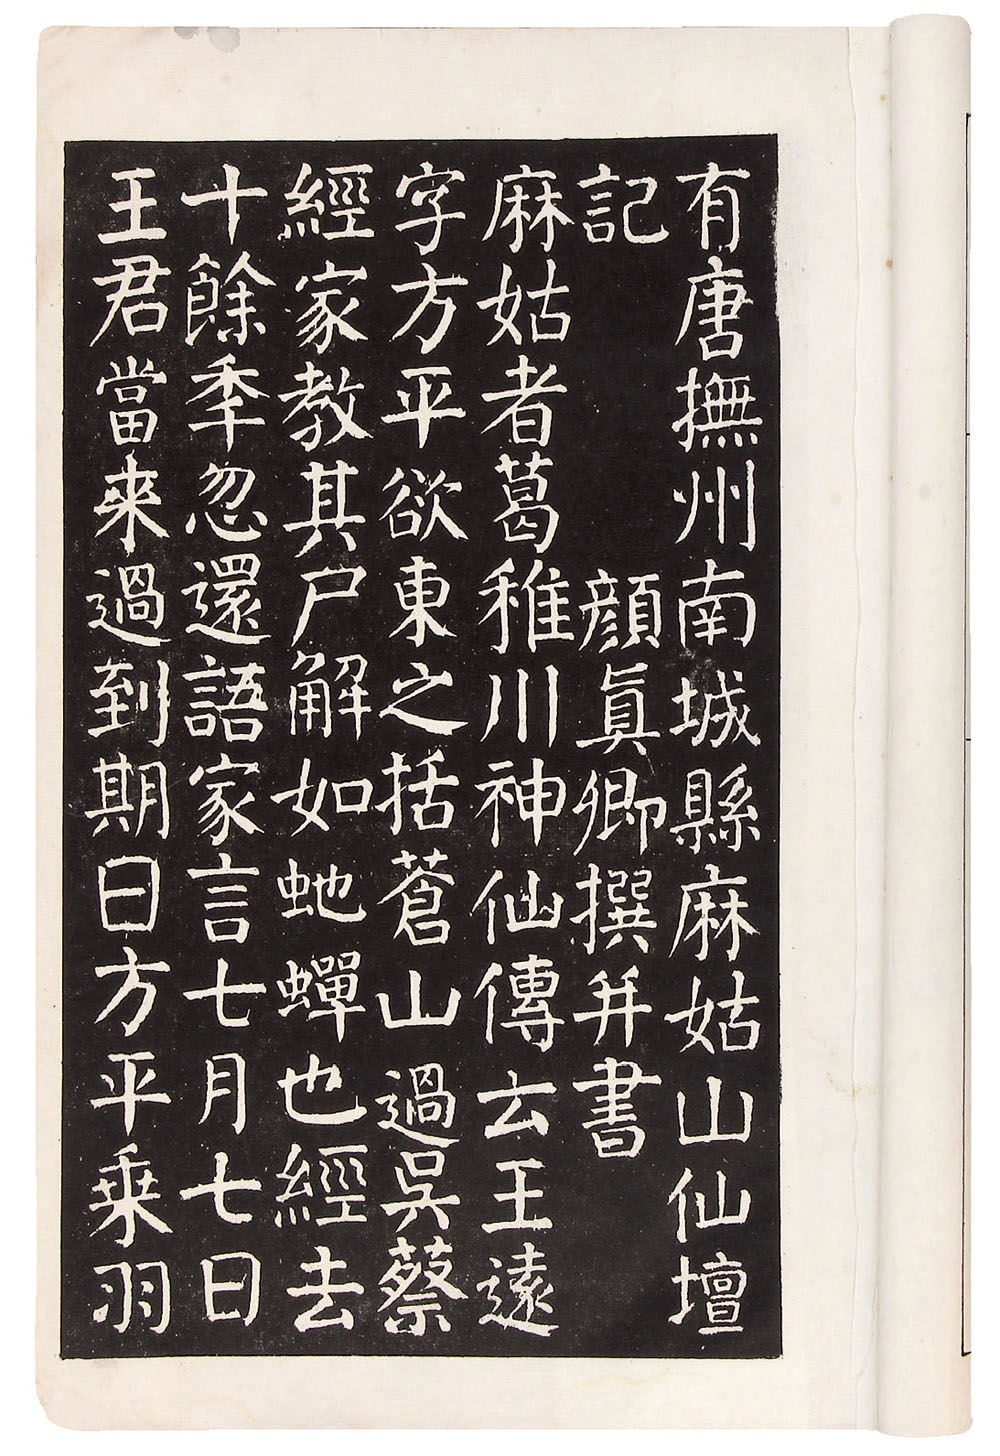 有唐撫州南城縣麻姑山仙壇
記 顏眞卿撰并書
麻姑者葛稚川神仙傳云王遠
字方平欲東之括蒼山過吳蔡
經家教其尸解如虵蟬也經去
十餘季忽還語家言七月七日
王君當來過到期日方平乗羽